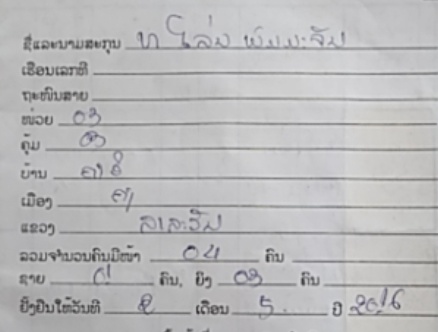 ຊື່ແລະນາມສະກຸນ ທ ໂລ່ນ ພົມມະຈັນ
ເຮືອນເລກທີ
ຖະໜົນສາຍ
ໜ່ວຍ 03
ຄຸ້ມ 03
ບ້ານ
ເມືອງ
ແຂວງ ສາລະວັນ
ລວມຈຳນວນຄົນມີໜ້າ 04 ຄົນ
ຊາຍ 01 ຄົນ, ຍິງ 03 ຄົນ
ຢັ້ງຢືນໃຫ້ວັນທີ 2 ເດືອນ 5 ປີ 2016